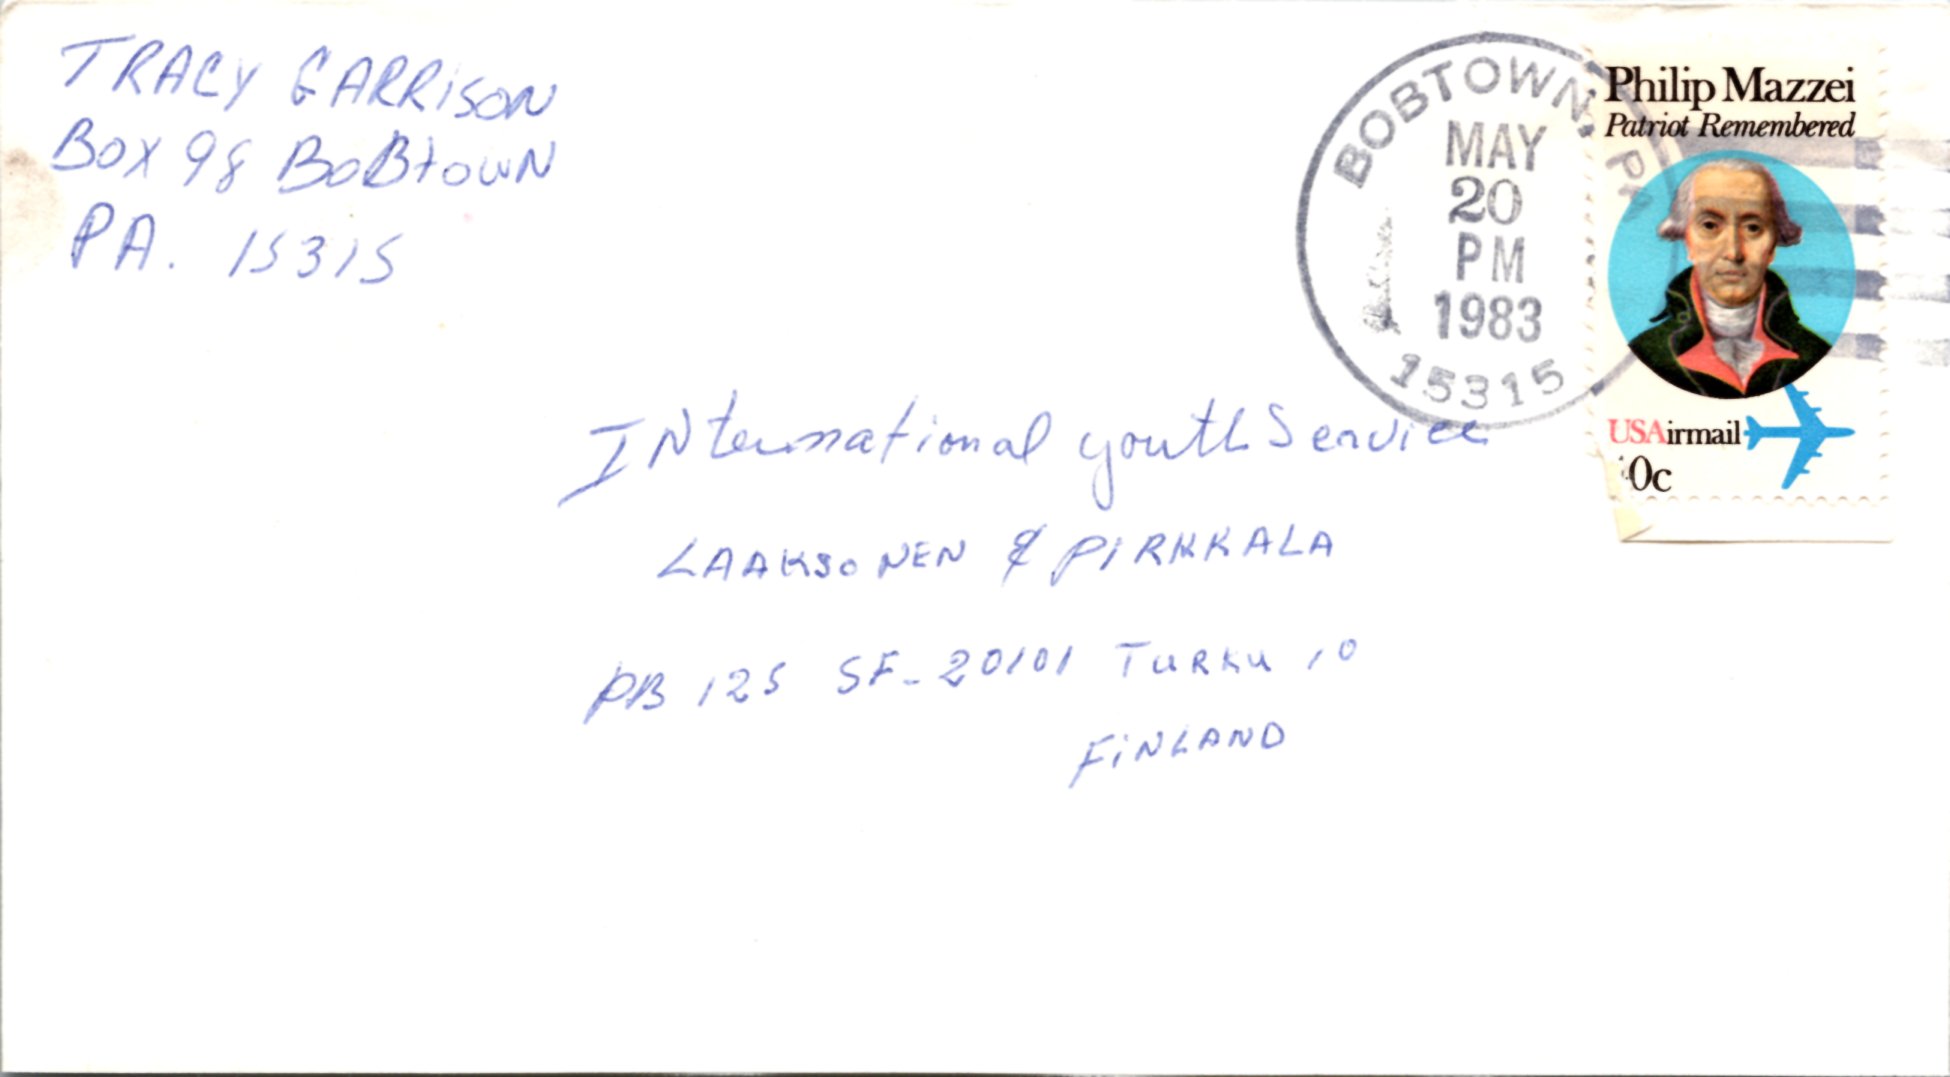 TRACY GARRISON
BOX 98 BOBtOWN
PA. 15315
BOBTOWN, PA
MAY
20
PM
1983
15315
Philip Mazzei
Patriot Remembered
USAirmail
0c
INternational youth Service
LAAKSONEN & PIRKKALA
PB 125 SF-20101 TURKU 10
FiNLAND